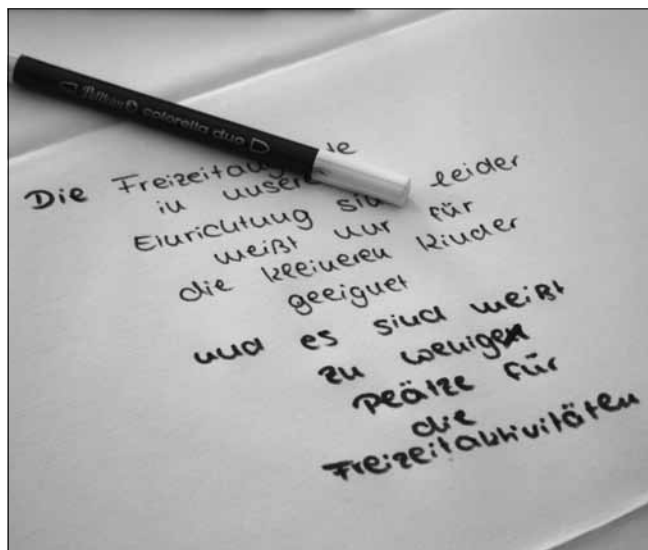 Pelikan colorella duo
Die
in unsere
Einrichtung sind leider
weißt nur für
die kleineren Kinder
geeignet
und es sind meißt
zu wenige
Plätze für
die
Freizeitaktivitäten